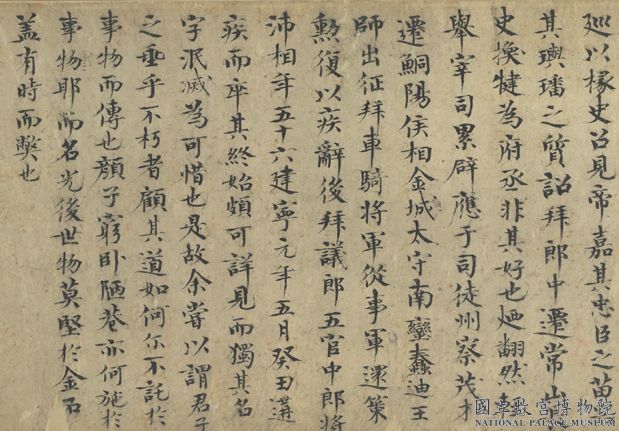 巡以掾史召見帝嘉其忠臣之苗
其璵璠之質詔拜郎中遷常山
史換犍為府丞非其好也迺翻然輕
舉宰司累辟應于司徒州察茂才
遷鮦陽侯相金城太守南蠻蠢迪王
師出征拜車騎將軍從事軍還策
勲復以疾辭後拜議郎五官中郎將
沛相年五十六建寧元年五月癸丑遘
疾而卒其終始頗可詳見而獨其名
字泯滅為可惜也是故余嘗以謂君子
之垂乎不朽者顧其道如何尔不託於
事物而傳也顏子窮臥陋巷亦何施於
事物耶而名光後世物莫堅於金石
蓋有時而弊也
國立故宮博物院
NATIONAL PALACE MUSEUM